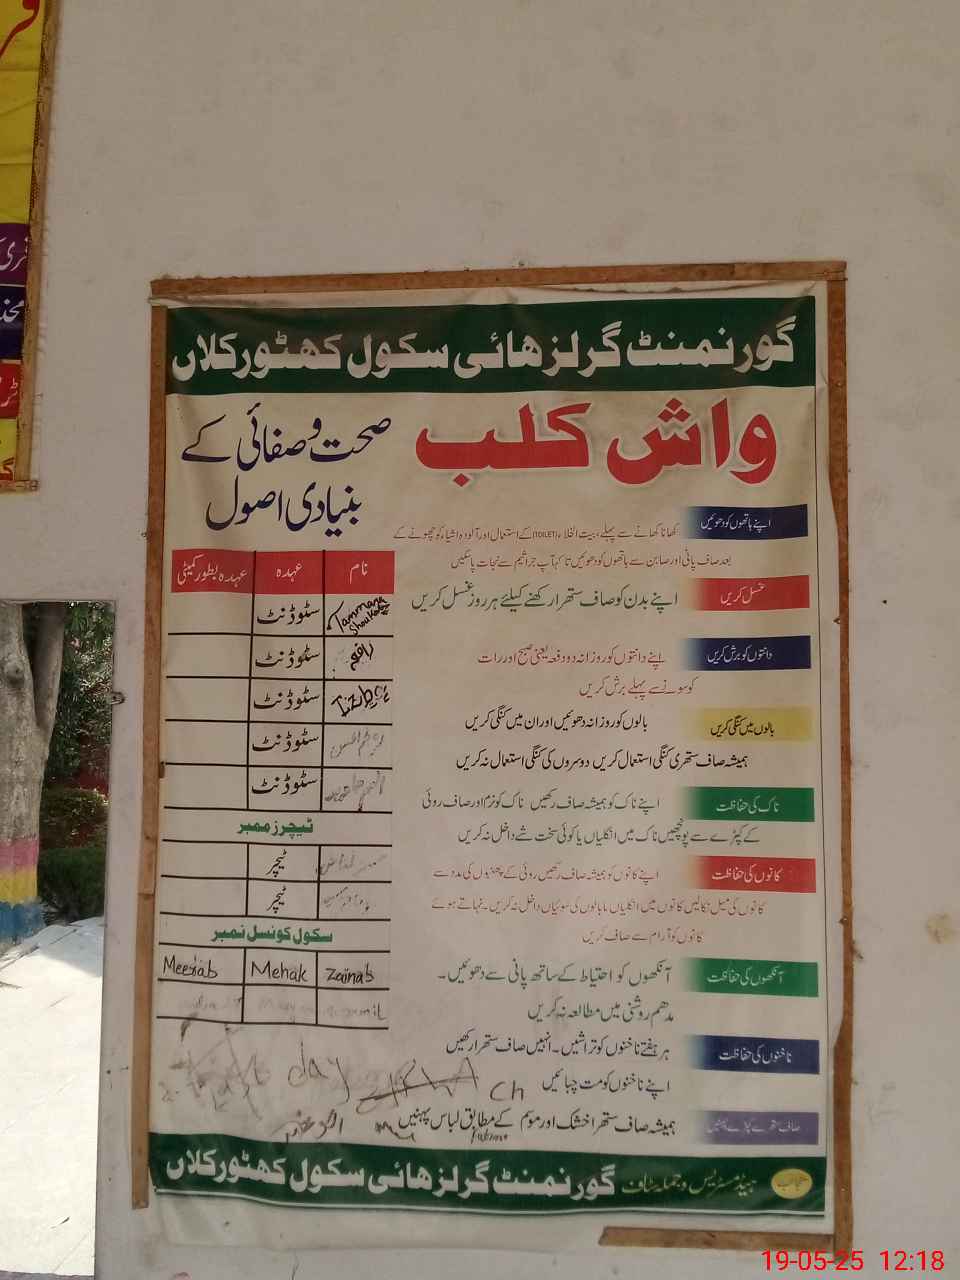 گورنمنٹ گرلز ہائی سکول کھٹور کلاں
واش کلب
صحت و صفائی کے
بنیادی اصول
اپنے ہاتھوں کو دھوئیں
کھانا کھانے سے پہلے، بیت الخلاء (TOILET) کے استعمال اور آلودہ اشیاء کو چھونے کے
بعد صاف پانی اور صابن سے ہاتھوں کو دھوئیں تاکہ آپ جراثیم سے نجات پا سکیں
غسل کریں
اپنے بدن کو صاف ستھرا رکھنے کیلئے ہر روز غسل کریں
دانتوں کو برش کریں
اپنے دانتوں کو روزانہ دو دفعہ یعنی صبح اور رات
کو سونے سے پہلے برش کریں
بالوں میں کنگی کریں
بالوں کو روزانہ دھوئیں اور ان میں کنگی کریں
ہمیشہ صاف ستھری کنگی استعمال کریں دوسروں کی کنگی استعمال نہ کریں
ناک کی حفاظت
اپنے ناک کو ہمیشہ صاف رکھیں ناک کو نرم اور صاف روئی
کے کپڑے سے پونچھیں ناک میں انگلیاں یا کوئی سخت شے داخل نہ کریں
کانوں کی حفاظت
اپنے کانوں کو ہمیشہ صاف رکھیں روئی کے پھنبوں کی مدد سے
کانوں کی میل نکالیں کانوں میں انگلیاں یا بالوں کی سوئیاں داخل نہ کریں۔ نہاتے ہوئے
کانوں کو آرام سے صاف کریں
آنکھوں کی حفاظت
آنکھوں کو احتیاط کے ساتھ پانی سے دھوئیں۔
مدھم روشنی میں مطالعہ نہ کریں
ناخنوں کی حفاظت
ہر ہفتے ناخنوں کو تراشیں۔ انہیں صاف ستھرا رکھیں
اپنے ناخنوں کو مت چبائیں
صاف ستھرے کپڑے پہنیں
ہمیشہ صاف ستھرا خشک اور موسم کے مطابق لباس پہنیں
نام عہدہ عہدہ بطور کمیٹی
Tammana Shoukat سٹوڈنٹ
رافعہ سٹوڈنٹ
سٹوڈنٹ
سٹوڈنٹ
سٹوڈنٹ
ٹیچرز ممبر
ٹیچر
ٹیچر
سکول کونسل ممبر
Meerab Mehak Zainab
day
Ch
منجانب ہیڈ مسٹریس و جملہ سٹاف گورنمنٹ گرلز ہائی سکول کھٹور کلاں
19-05-25 12:18